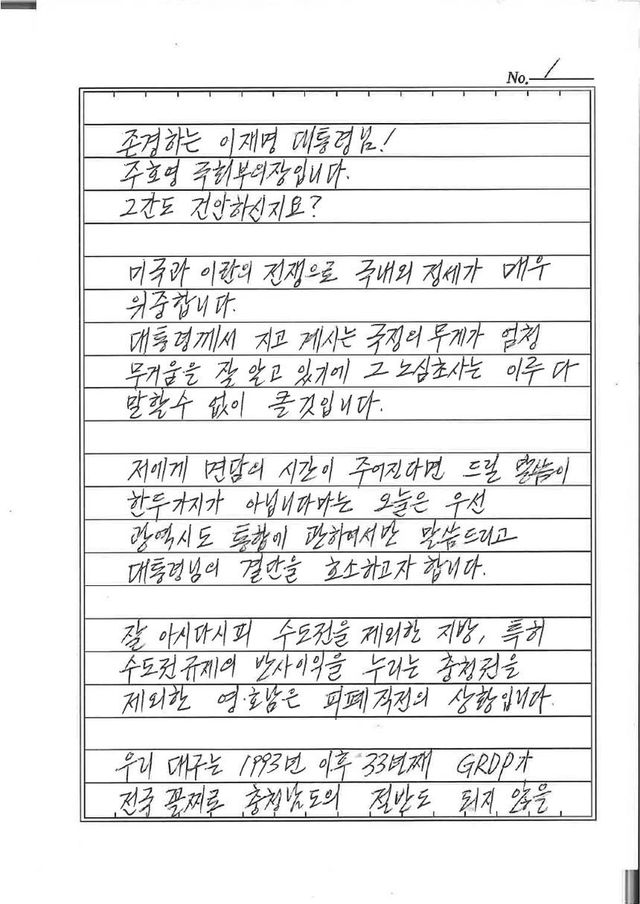 No. 1
존경하는 이재명 대통령님!
주호영 국회부의장입니다.
그간도 건안하신지요?
미국과 이란의 전쟁으로 국내외 정세가 매우
위중합니다.
대통령께서 지고 계시는 국정의 무게가 엄청
무거움을 잘 알고 있기에 그 노심초사는 이루 다
말할 수 없이 클 것입니다.
저에게 면담의 시간이 주어진다면 드릴 말씀이
한두가지가 아닙니다마는 오늘은 우선
광역시도 통합에 관하여서만 말씀드리고
대통령님의 결단을 호소하고자 합니다.
잘 아시다시피 수도권을 제외한 지방, 특히
수도권 규제의 반사이익을 누리는 충청권을
제외한 영·호남은 피폐 직전의 상황입니다.
우리 대구는 1993년 이후 33년째 GRDP가
전국 꼴찌로 충청남도의 절반도 되지 않을